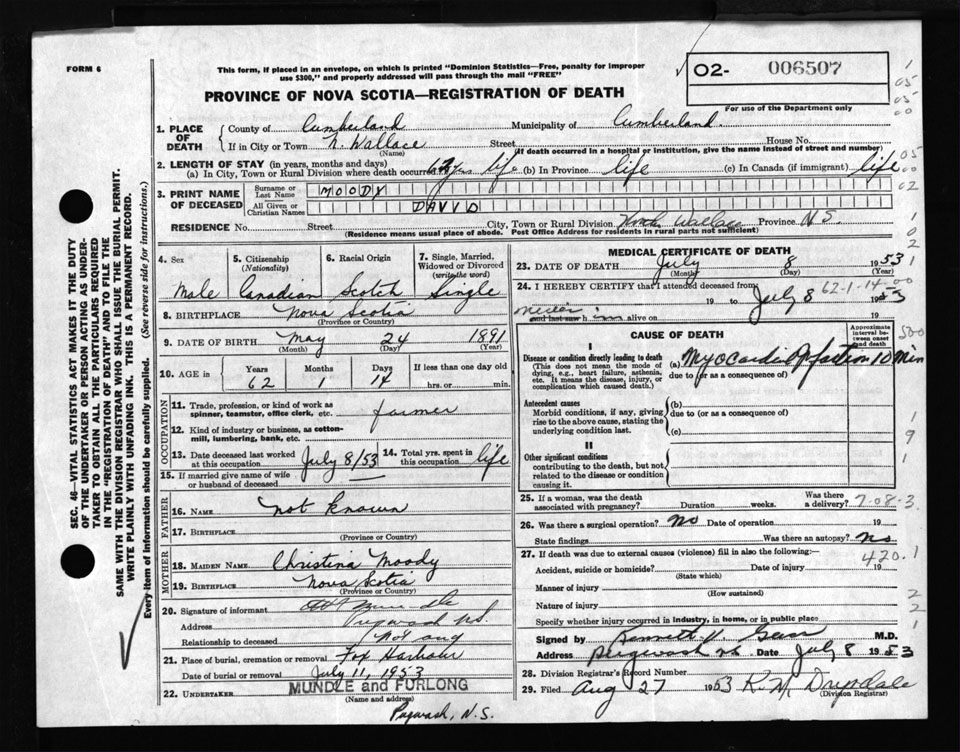 FORM 6
This form, if placed in an envelope, on which is printed "Dominion Statistics—Free, penalty for improper
use $300," and properly addressed will pass through the mail "FREE"
02- 006507
For use of the Department only
PROVINCE OF NOVA SCOTIA—REGISTRATION OF DEATH
1. PLACE OF DEATH
County of Cumberland Municipality of Cumberland
If in City or Town N. Wallace Street House No.
(Name) (If death occurred in a hospital or institution, give the name instead of street and number)
2. LENGTH OF STAY (in years, months and days)
(a) In City, Town or Rural Division where death occurred 62 yrs life (b) In Province life (c) In Canada (if immigrant) life
3. PRINT NAME OF DECEASED
Surname or Last Name MOODY
All Given or Christian Names DAVID
RESIDENCE No. Street City, Town or Rural Division North Wallace Province N.S.
(Residence means usual place of abode. Post Office Address for residents in rural parts not sufficient)
4. Sex Male
5. Citizenship (Nationality) Canadian
6. Racial Origin Scotch
7. Single, Married, Widowed or Divorced (write the word) Single
8. BIRTHPLACE Nova Scotia
(Province or Country)
9. DATE OF BIRTH May 24 1891
(Month) (Day) (Year)
10. AGE in Years Months Days If less than one day old
62 1 14 hrs. or min.
OCCUPATION
11. Trade, profession, or kind of work as spinner, teamster, office clerk, etc. farmer
12. Kind of industry or business, as cotton-mill, lumbering, bank, etc.
13. Date deceased last worked at this occupation July 8/53
14. Total yrs. spent in this occupation life
15. If married give name of wife or husband of deceased
FATHER
16. Name not known
17. Birthplace
(Province or Country)
MOTHER
18. MAIDEN NAME Christina Moody
19. BIRTHPLACE Nova Scotia
(Province or Country)
20. Signature of informant Mundle
Address Pugwash N.S.
Relationship to deceased Not any
21. Place of burial, cremation or removal Fox Harbour
Date of burial or removal July 11, 1953
22. UNDERTAKER MUNDLE and FURLONG
(Name and address)
Pugwash, N.S.
MEDICAL CERTIFICATE OF DEATH
23. DATE OF DEATH July 8 1953
(Month) (Day) (Year)
24. I HEREBY CERTIFY that I attended deceased from
19 to July 8 1953
62-1-14
never and last saw h im alive on 19
CAUSE OF DEATH
Approximate interval between onset and death
I
Disease or condition directly leading to death
(This does not mean the mode of dying, e.g., heart failure, asthenia, etc. It means the disease, injury, or complication which caused death.)
(a) 10 Min
due to (or as a consequence of)
Antecedent causes
Morbid conditions, if any, giving rise to the above cause, stating the underlying condition last.
(b)
due to (or as a consequence of)
(c)
II
Other significant conditions
contributing to the death, but not related to the disease or condition causing it.
25. If a woman, was the death associated with pregnancy? Duration weeks. Was there a delivery?
7-08-3
26. Was there a surgical operation? No Date of operation 19
State findings Was there an autopsy? No
27. If death was due to external causes (violence) fill in also the following:—
420.1
Accident, suicide or homicide? Date of injury 19
(State which)
Manner of injury
(How sustained)
Nature of injury
Specify whether injury occurred in industry, in home, or in public place
Signed by Kenneth M.D.
Address Pugwash NS Date July 8 1953
28. Division Registrar's Record Number
29. Filed Aug 27 1953 K. M. Drysdale
(Division Registrar)
SEC. 46—VITAL STATISTICS ACT MAKES IT THE DUTY
OF THE UNDERTAKER OR PERSON ACTING AS UNDER-
TAKER TO OBTAIN ALL THE PARTICULARS REQUIRED
IN THE "REGISTRATION OF DEATH" AND TO FILE THE
SAME WITH THE DIVISION REGISTRAR WHO SHALL ISSUE THE BURIAL PERMIT.
WRITE PLAINLY WITH UNFADING INK. THIS IS A PERMANENT RECORD.
Every item of information should be carefully supplied. (See reverse side for instructions.)